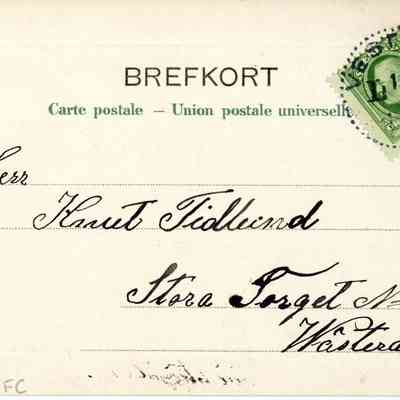 VEST
L 1
BREFKORT
Carte postale — Union postale universelle
Herr
Knut Tidlund
Stora Torget N
Västerå
FC